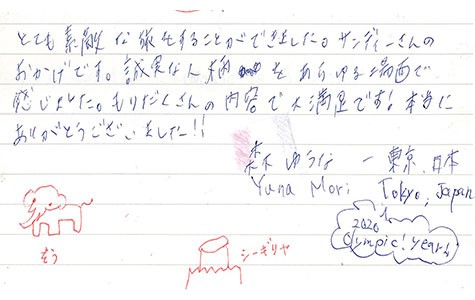 とても素敵な旅をすることができました。サンディーさんの
おかげです。誠実な人柄をあらゆる場面で
感じました。もりだくさんの内容で大満足です！本当に
ありがとうございました！！
森 ゆうな － 東京、日本
Yuna Mori Tokyo, Japan
2020
Olympic! year!
ぞう
シーギリヤ